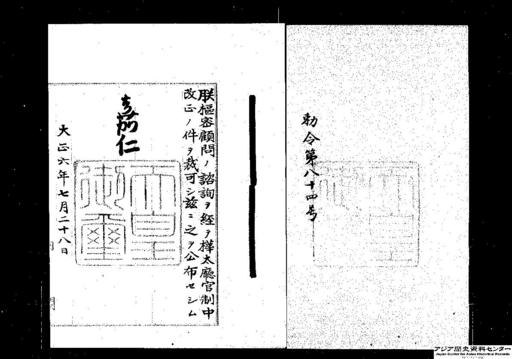 勅令第八十四号
朕枢密顧問ノ諮詢ヲ経テ樺太庁官制中
改正ノ件ヲ裁可シ茲ニ之ヲ公布セシム
嘉仁
天皇
御璽
大正六年七月二十八日
アジア歴史資料センター
Japan Center for Asian Historical Records